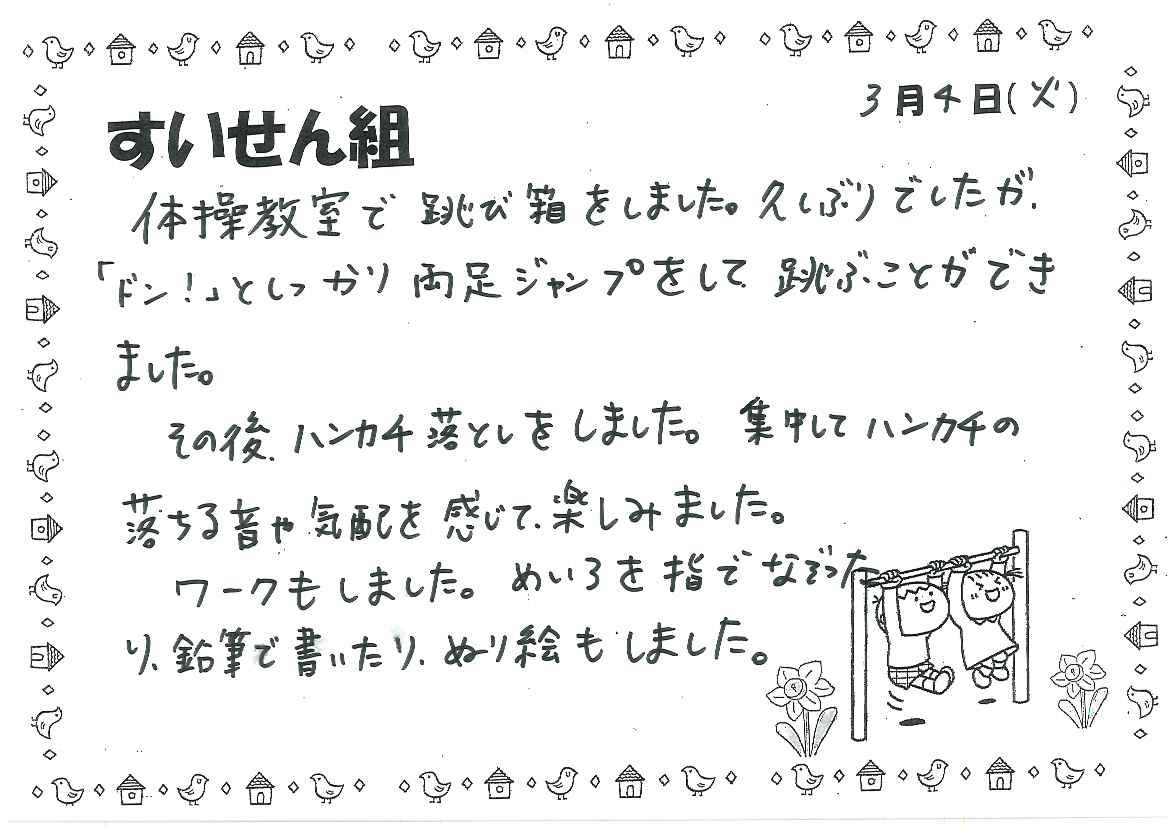 3月4日(火)
すいせん組
体操教室で跳び箱をしました。久しぶりでしたが、
「ドン!」としっかり両足ジャンプをして跳ぶことができ
ました。
その後、ハンカチ落としをしました。集中してハンカチの
落ちる音や気配を感じて、楽しみました。
ワークもしました。めいろを指でなぞった
り、鉛筆で書いたり、ぬり絵もしました。